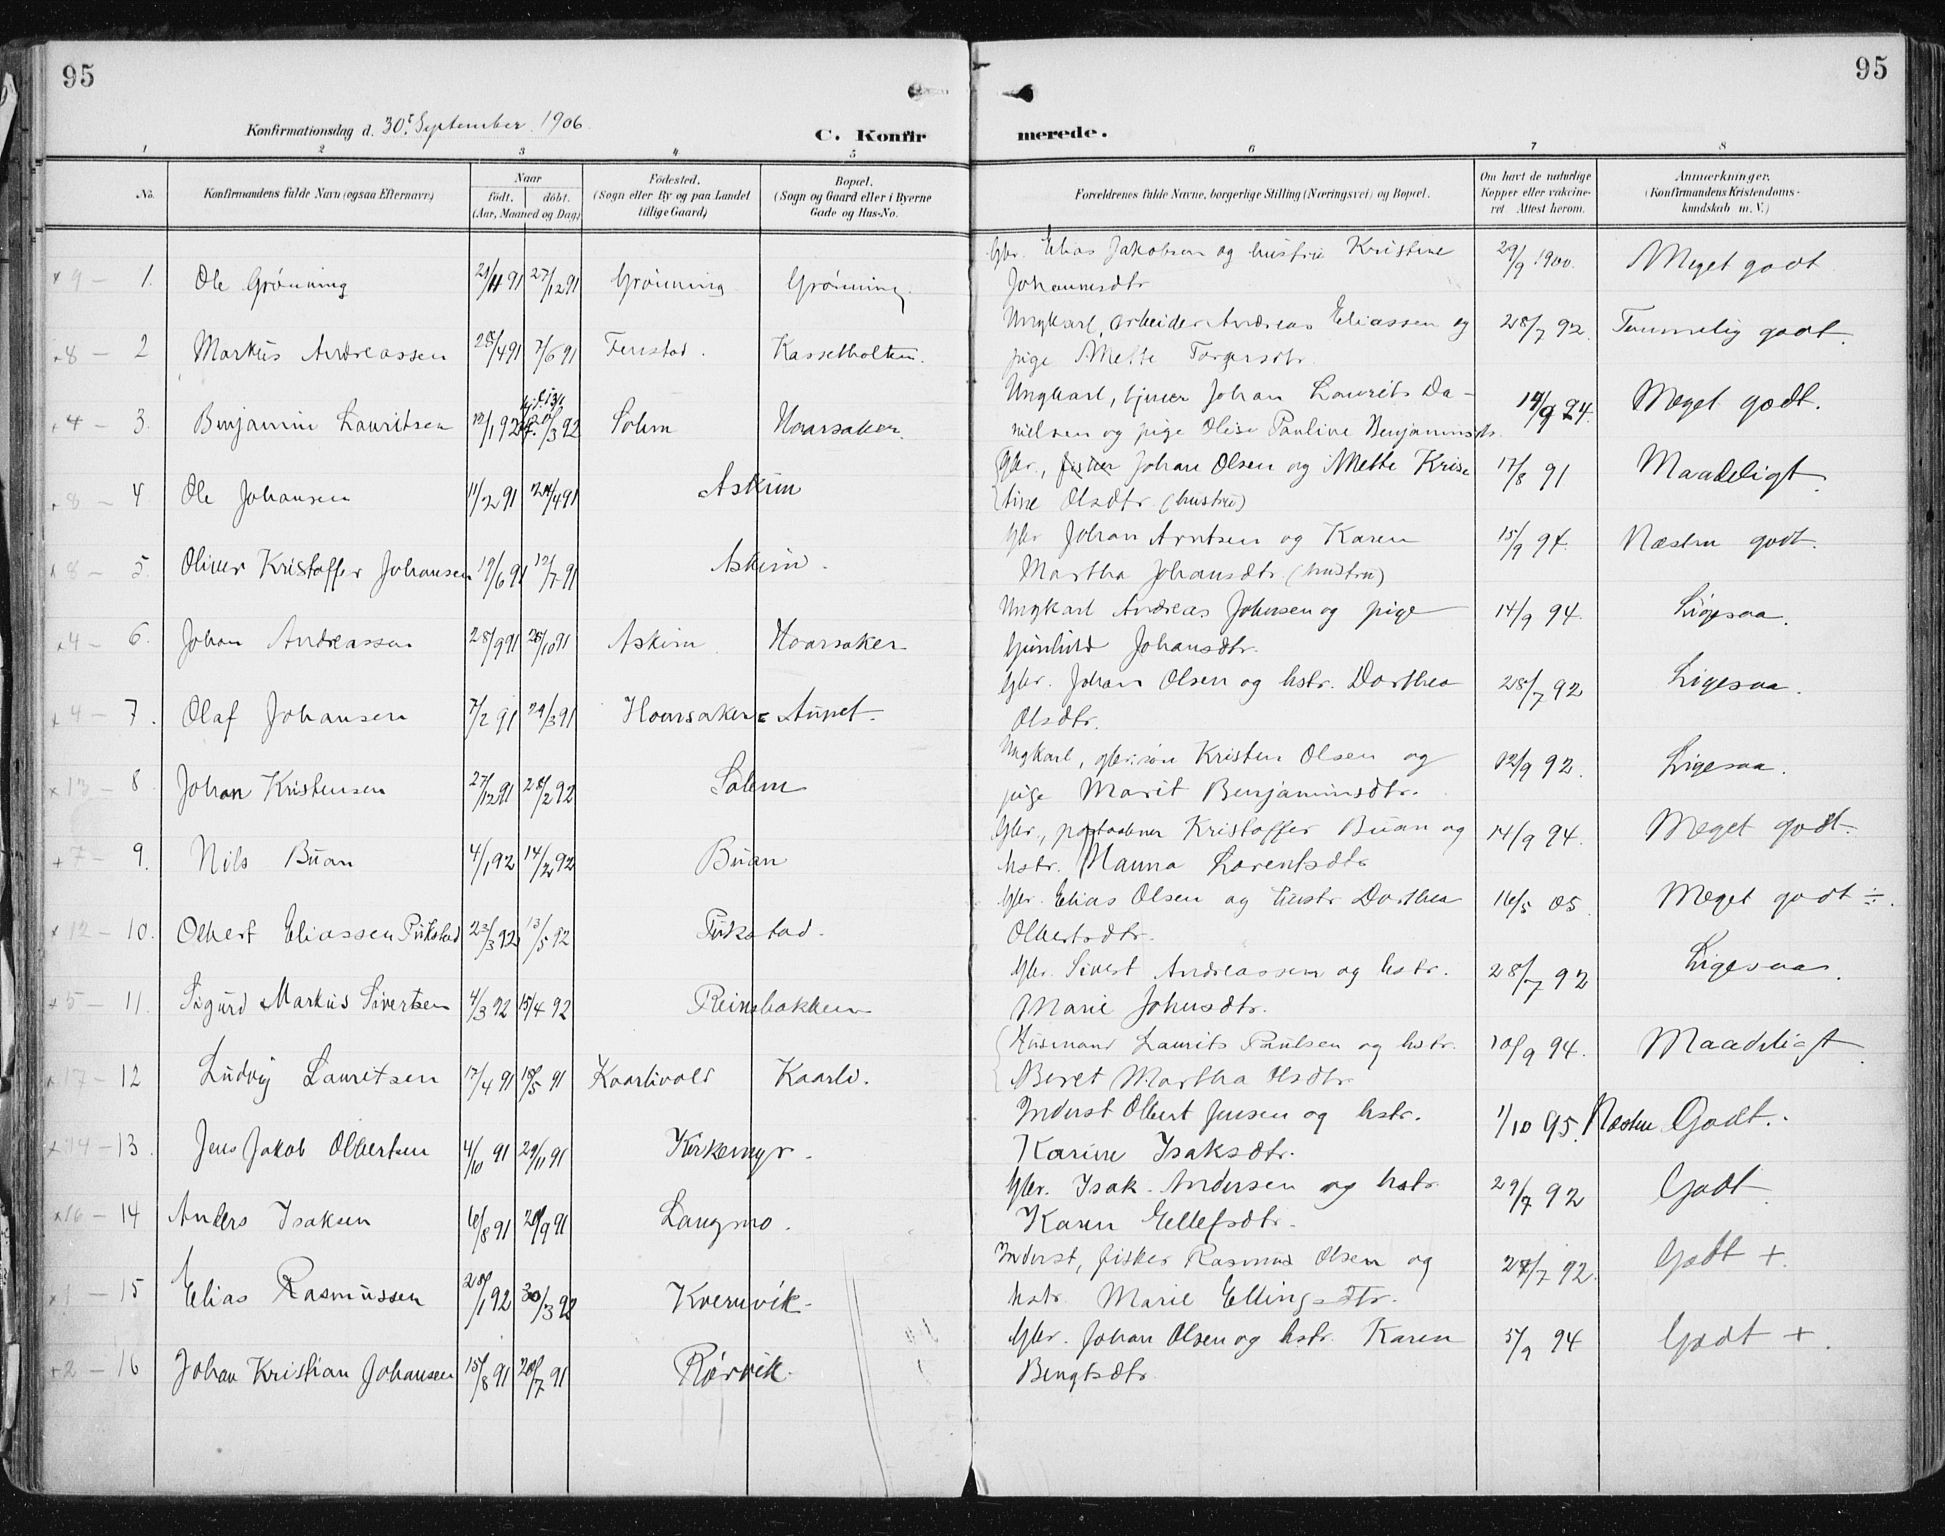 95
95
Konfirmationsdag d. 30t September 1906.
C. Konfirmerede.
1 2 3 4 5 6 7 8
No. Konfirmandens fulde Navn (ogsaa Efternavn) Naar født. døbt. (Aar, Maaned og Dag) Fødested. (Sogn eller By og paa Landet tillige Gaard) Bopæl. (Sogn og Gaard eller i Byerne Gade og Hus-No. Forældrenes fulde Navne, borgerlige Stilling (Næringsvei) og Bopæl. Om havt de naturlige Kopper eller vakcineret Attest herom. Anmerkninger. (Konfirmandens Kristendomskundskab m. V.)
× 9 – 1. Ole Grönning 21/11 91 27/12 91 Grönning Grönning. Gbr. Elias Jakobsen og hustru Kristine 29/9 1900. Meget godt
Johannesdtr
8 – 2 Markus Andreassen 28/4 91 7/6 91 Fenstad. Kasselholten. Ungkarl, arbeider Andreas Eliassen og 28/7 92. Temmelig godt.
pige Mette Torgersdtr.
4 – 3. Benjamin Lauritsen 12/1 92 /3 92 Solem Haarsaker. Ungkarl, tjener Johan Laurits Da- 14/9 94. Meget godt.
nielsen og pige Olise Pauline Benjaminsdtr.
8 – 4 Ole Johansen 11/2 91 /4 91 Askim Gbr., fisker Johan Olsen og Mette Kris 17/8 91 Maadeligt.
tine Olsdtr (hustru)
× 8 – 5. Oliver Kristoffer Johansen 19/6 91 19/7 91 Askim. Gbr Johan Arntsen og Karen 15/9 94. Næsten godt.
Martha Johansdtr (hustru)
× 4 – 6. Johan Andreassen 25/9 91 25/10 91 Askim Haarsaker Ungkarl Andreas Johnsen og pige 14/9 94. Ligesaa.
Gunhild Johansdtr.
× 4 – 7. Olaf Johansen 7/2 91 29/3 91 Haarsaker = Aunet. Gbr. Johan Olsen og hstr. Dorthea 28/7 92 Ligesaa.
Olsdtr.
× 13 – 8. Johan Kristensen 27/12 91 28/2 92 Solem Ungkarl, gbr.sön Kristen Olsen og 12/9 92. Ligesaa.
pige Marit Benjaminsdtr.
+ 7 – 9. Nils Buan 4/1 92 14/2 92 Buan Gbr., postaabner Kristoffer Buan og 14/9 94. Meget godt.
hstr. Hanna Lorentsdtr
× 12 – 10. Olbert Eliassen Pukstad 23/3 92 13/5 92 Pukstad. Gbr. Elias Olsen og hustr Dorthea 16/5 05. Meget godt ÷.
Olbertsdtr.
× 5 – 11. Sigurd Markus Sivertsen 4/3 92 15/4 92 Reinsbakken Gbr. Sivert Andreassen og hstr. 28/7 92 Ligesaa.
Marie Johnsdtr.
17 – 12 Ludvig Lauritsen 17/4 91 18/5 91 Kaarlivold Kaarli. Husmand Laurits Paulsen og hstr. 10/9 94. Maadeligt
Beret Martha Olsdtr
× 14 – 13. Jens Jakob Olbertsen 4/10 91 29/11 91 Kirkemyr. Inderst Olbert Jensen og hstr. 1/10 95. Næsten Godt.
Karine Isaksdtr.
×16 – 14 Anders Isaksen 10/8 91 20/9 91 Langmo. Gbr. Isak Andersen og hstr 29/7 92 Godt
Karen Ellefsdtr.
×1 – 15 Elias Rasmussen 28/1 92 30/3 92 Kvernvik. Inderst, fisker Rasmus Olsen og 28/7 92. Godt +
hstr. Marie Ellingsdtr.
+2 – 16 Johan Kristian Johansen 15/8 91 20/7 91 Rörvik. Gbr. Johan Olsen og hstr. Karen 5/9 94 Godt +.
Bengtsdtr.